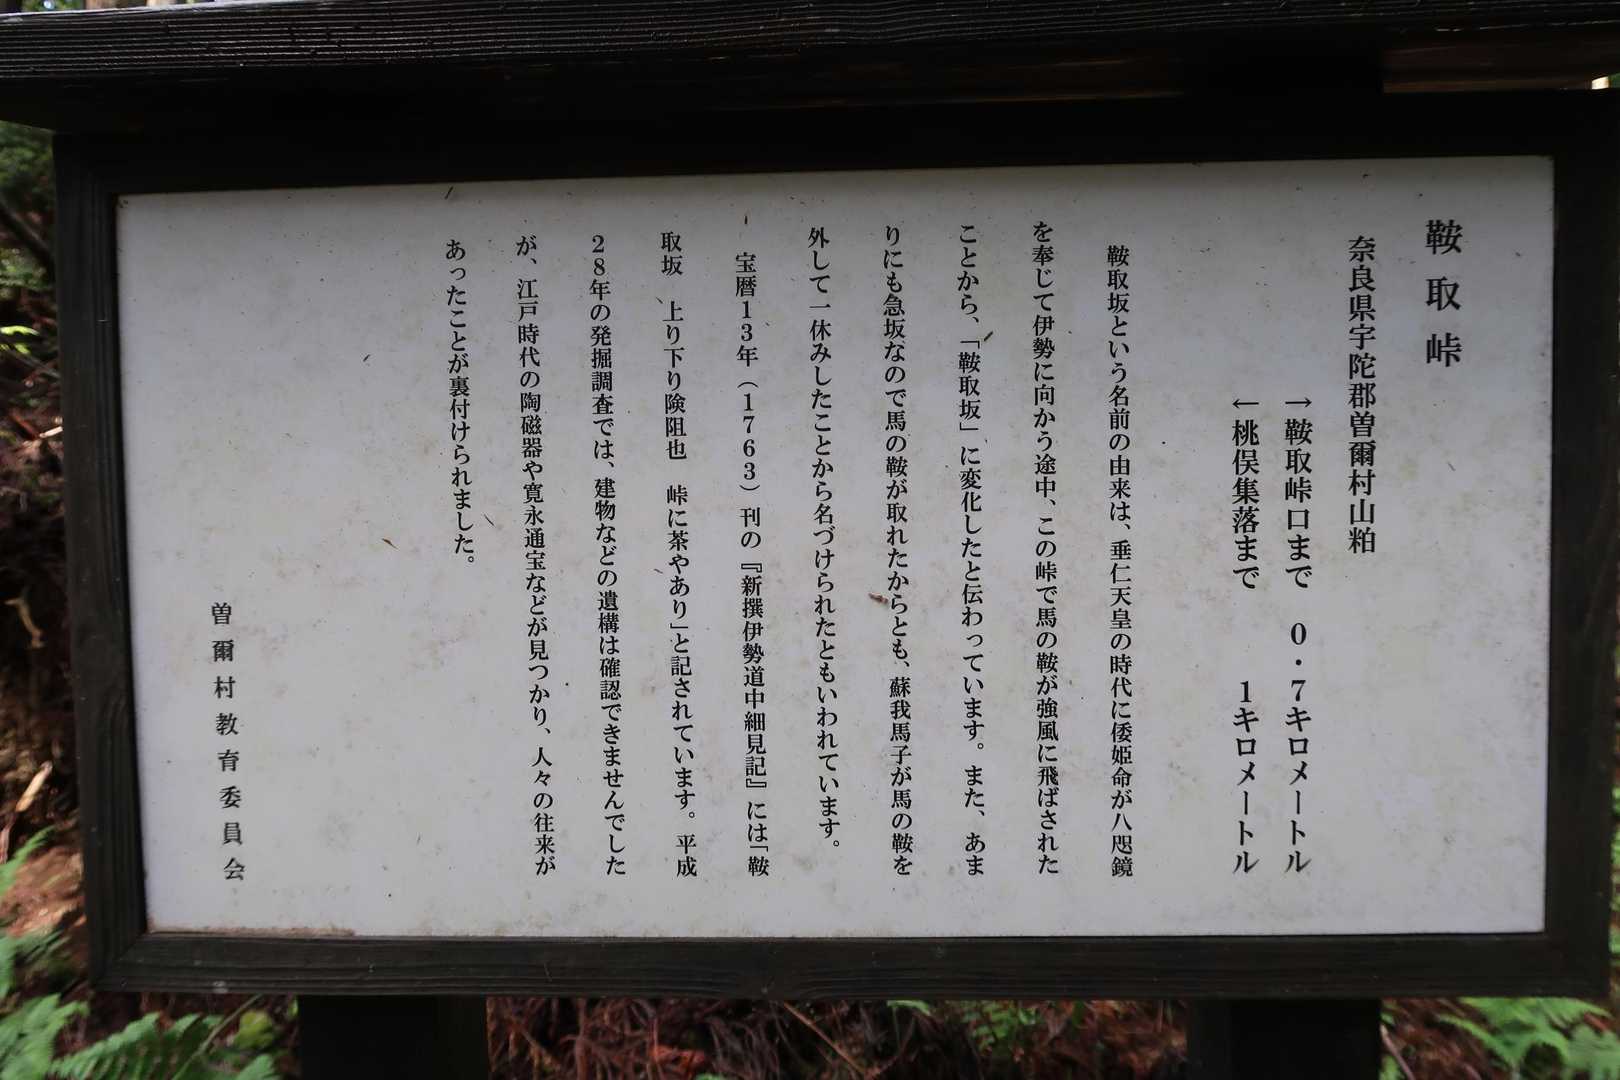 鞍取峠
奈良県宇陀郡曽爾村山粕
→鞍取峠口まで　0・7キロメートル
←桃俣集落まで　1キロメートル
鞍取坂という名前の由来は、垂仁天皇の時代に倭姫命が八咫鏡
を奉じて伊勢に向かう途中、この峠で馬の鞍が強風に飛ばされた
ことから、「鞍取坂」に変化したと伝わっています。また、あま
りにも急坂なので馬の鞍が取れたからとも、蘇我馬子が馬の鞍を
外して一休みしたことから名づけられたともいわれています。
宝暦13年（1763）刊の『新撰伊勢道中細見記』には「鞍
取坂　上り下り険阻也　峠に茶やあり」と記されています。平成
28年の発掘調査では、建物などの遺構は確認できませんでした
が、江戸時代の陶磁器や寛永通宝などが見つかり、人々の往来が
あったことが裏付けられました。
曽爾村教育委員会